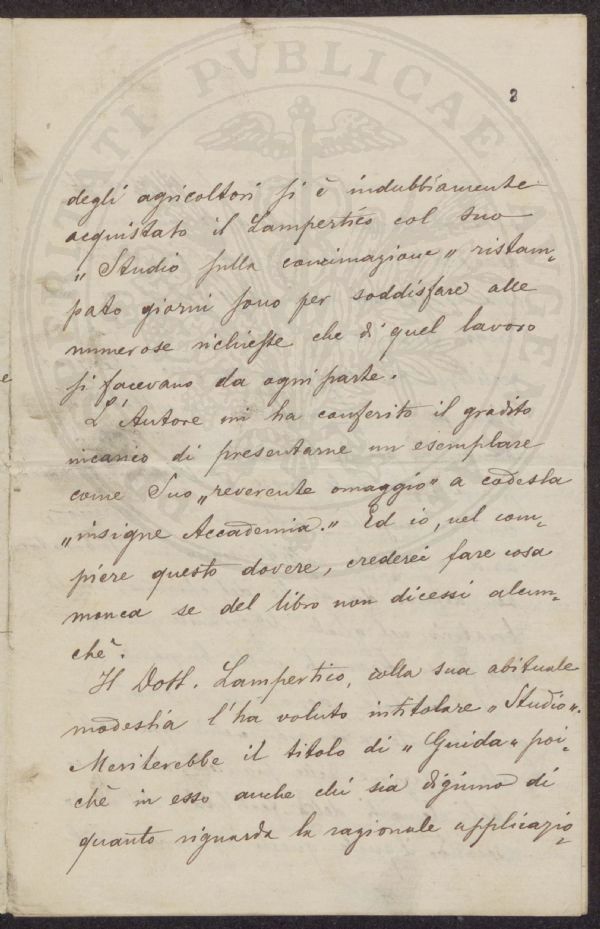 PVBLICAE
2
degli agricoltori si è indubbiamente
acquistato il Lampertico col suo
„ Studio sulla concimazione „ ristam-
pato giorni sono per soddisfare alle
numerose richieste che di quel lavoro
si facevano da ogni parte.
L'Autore mi ha conferito il gradito
incarico di presentarne un esemplare
come Suo „reverente omaggio" a codesta
„insigne Accademia." Ed io, nel com-
piere questo dovere, crederei fare cosa
monca se del libro non dicessi alcun-
chè.
Il Dott. Lampertico, colla sua abituale
modestia l'ha voluto intitolare „Studio".
Meriterebbe il titolo di „ Guida „ poi-
chè in esso anche chi sia digiuno di
quanto riguarda la razionale applicazio-